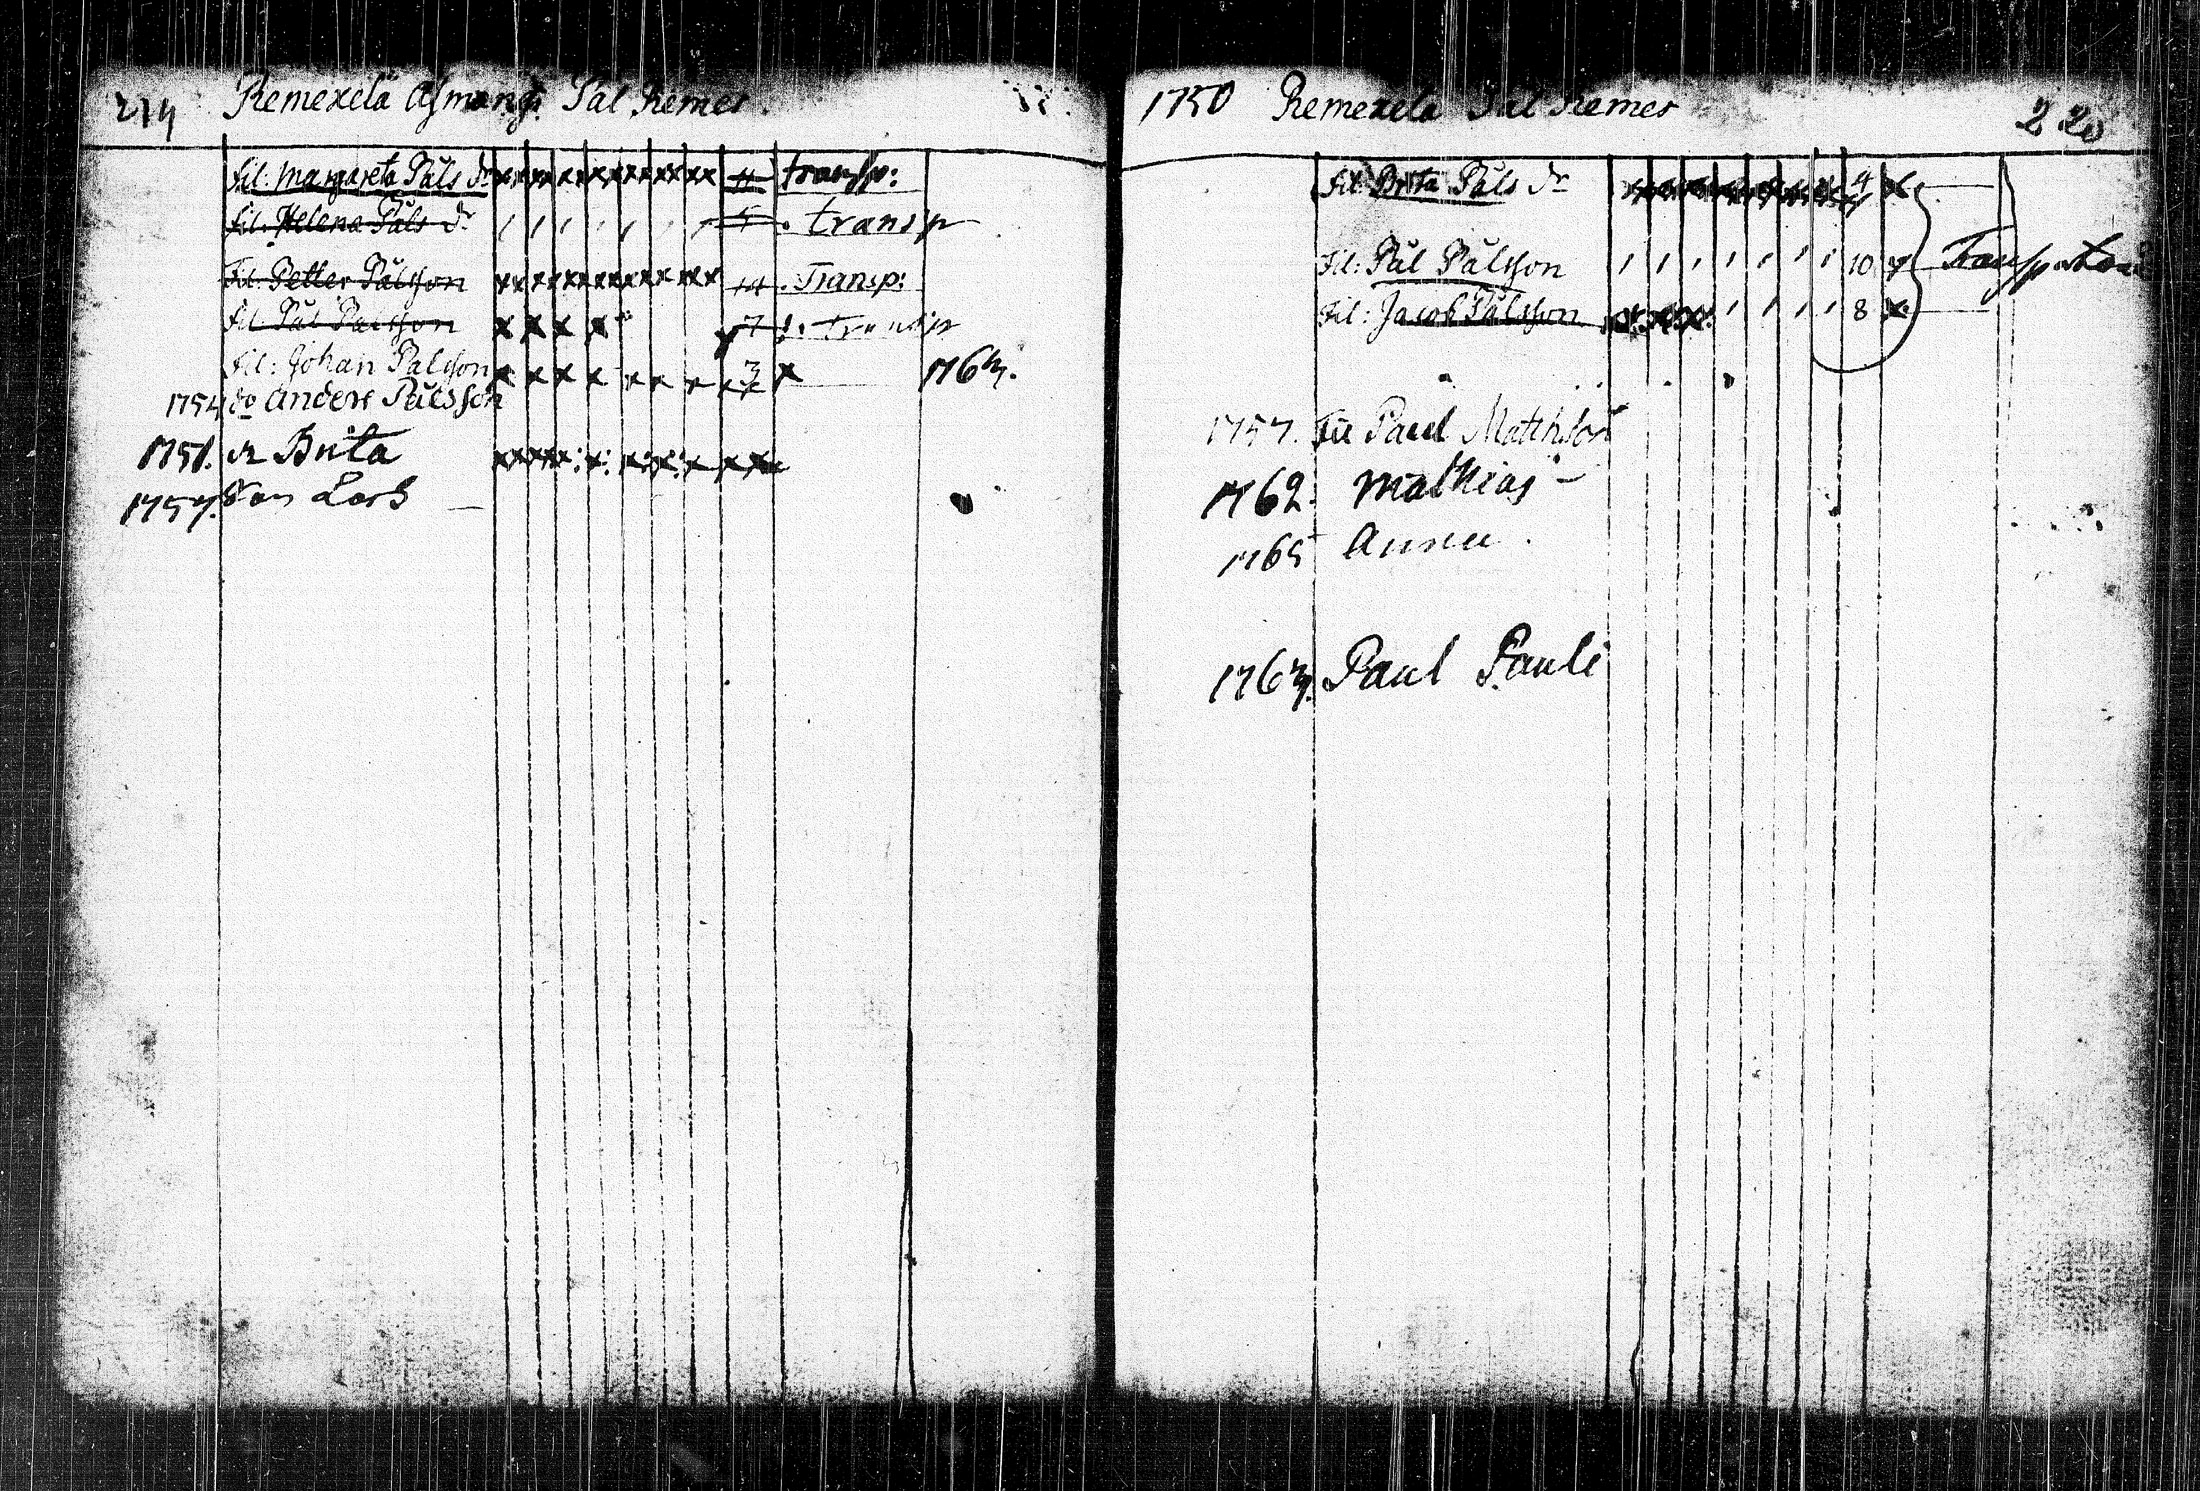 219 Remexelä Asmang: Pål Remes.
fil: Margareta Påls dr 11 transp:
fil: Helena Påls dr 5 transp
Fil: Petter Pålsson 14 Transp:
fil Pål Pålsson 7 transp
fil: Johan Pålsson 3 1763.
1754 do Anders Pålsson
1751. dr Brita
1757. Son Lars
1750 Remexela Pål Remes 220
fil: Brita Påls dr 4
fil: Pål Pålsson 10 Transporterade
fil: Jacob Pålsson 8
1757. Fil Paul Matthsson
1762. Mathias
1765 Anna.
1763. Paul Pauli